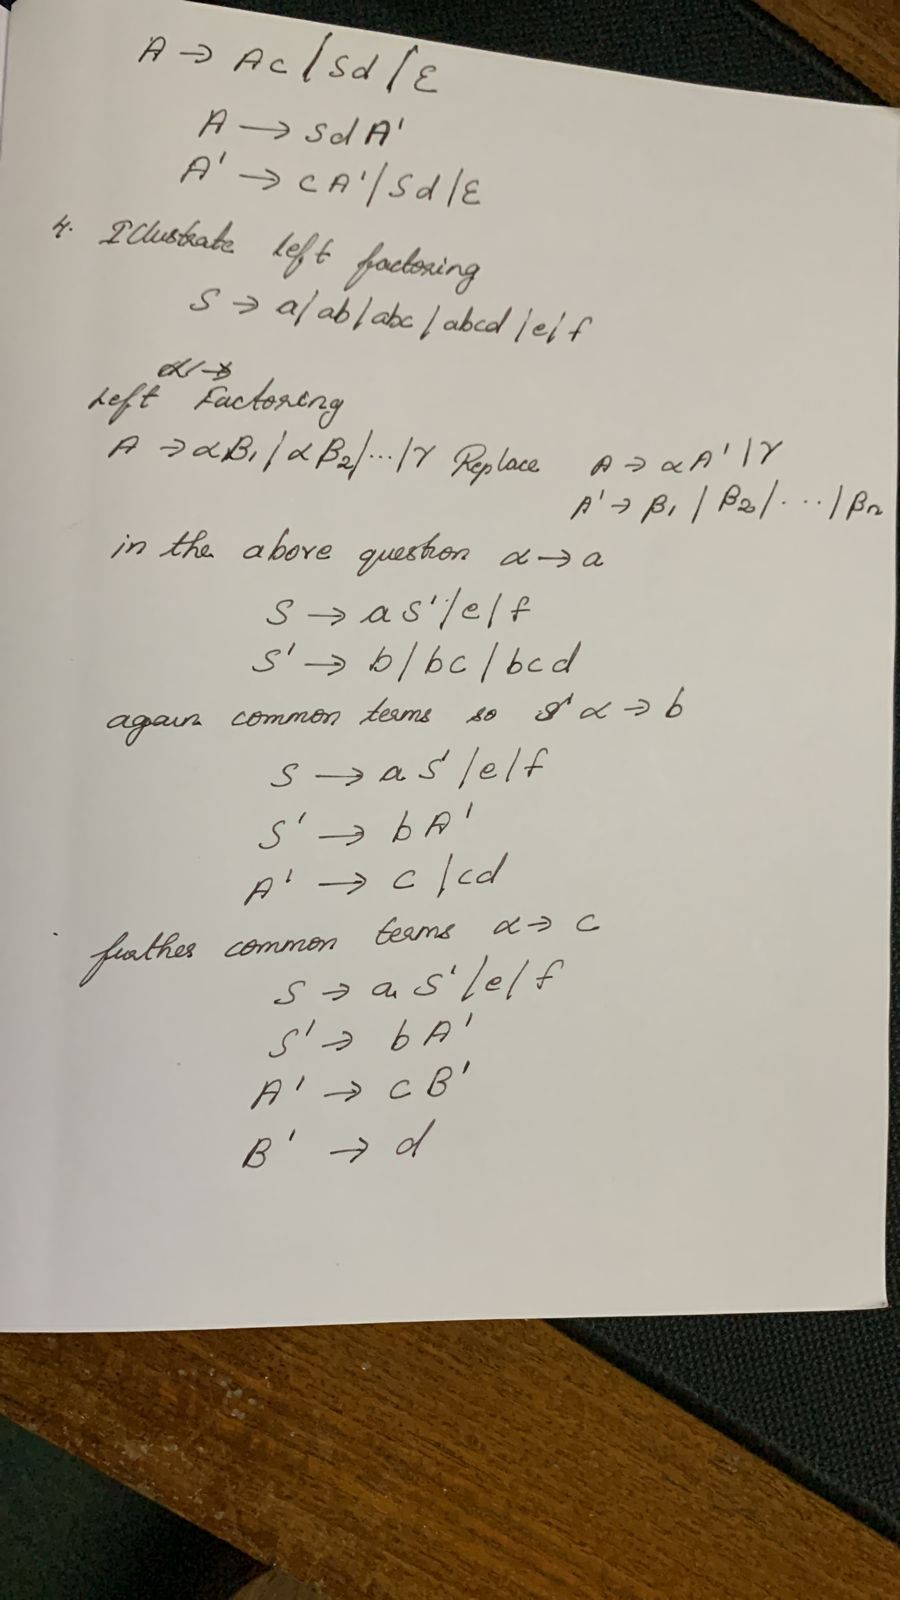 A → Ac / Sd / ε
A → SdA'
A' → cA' / Sd / ε
4. Illustrate Left factoring
S → a / ab / abc / abcd / e / f
α →
Left Factoring
A → αβ₁ / αβ₂ / ... / γ Replace A → αA' | γ
A' → β₁ / β₂ / .... / βn
in the above question α → a
S → aS' / e / f
S' → b / bc / bcd
again common terms so α → b
S → aS' / e / f
S' → bA'
A' → c / cd
further common terms α → c
S → aS' / e / f
S' → bA'
A' → cB'
B' → d